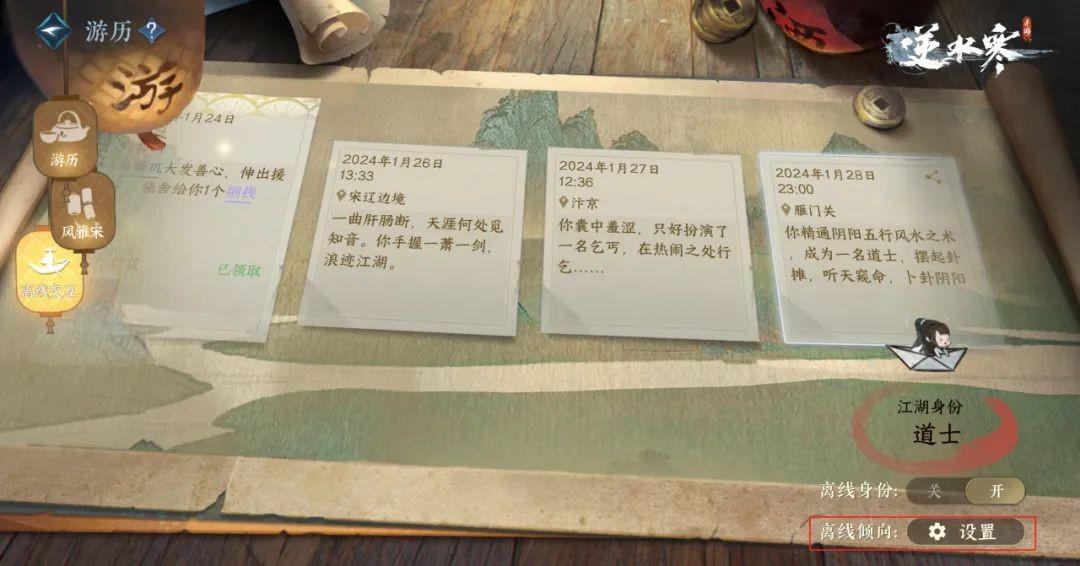 游历
?
游
游历
风雅宋
离线交互
1月24日
大发善心，伸出援
舍给你1个铜钱
已领取
2024年1月26日
13:33
宋辽边境
一曲肝肠断，天涯何处觅
知音。你手握一萧一剑，
浪迹江湖。
2024年1月27日
12:36
汴京
你囊中羞涩，只好扮演了
一名乞丐，在热闹之处行
乞……
2024年1月28日
23:00
雁门关
你精通阴阳五行风水之术
，成为一名道士，摆起卦
摊，听天窥命，卜卦阴阳
逆水寒
江湖身份
道士
离线身份：
关
开
离线倾向：
设置